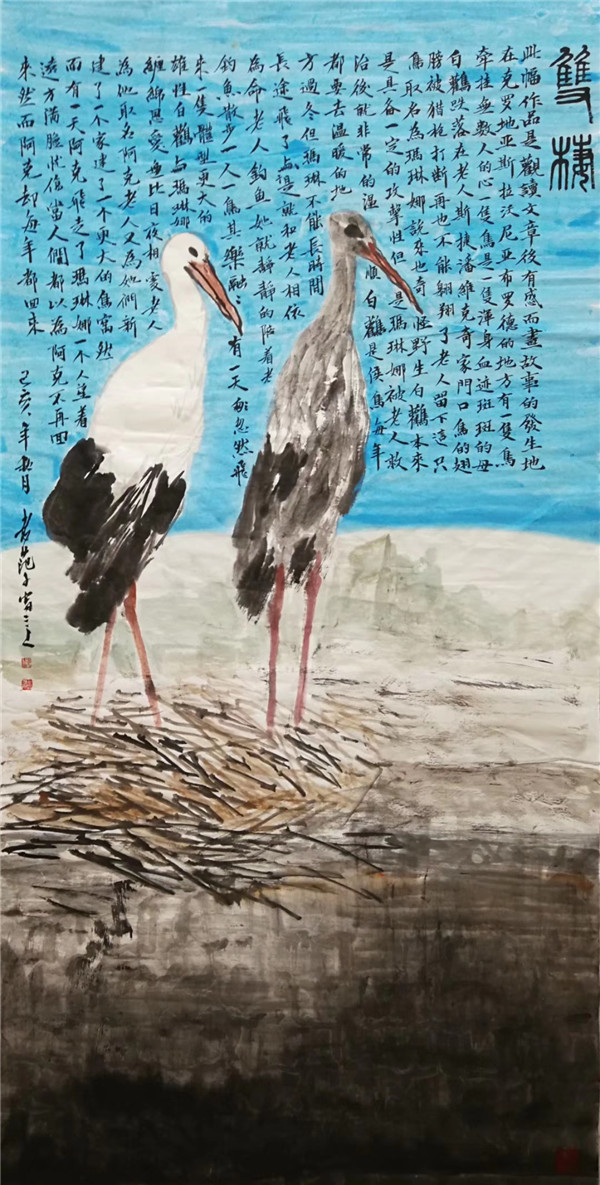 雙棲
此幅作品是觀讀文章後有感而畫故事的發生地
在克罗地亚斯拉沃尼亚布罗德的地方有一隻鳥
牵挂無數人的心一隻鳥是一隻渾身血迹斑斑的母
白鸛跌落在老人斯捷潘維克奇家門口鳥的翅
膀被猎枪打断再也不能翱翔了老人留下這只
鳥取名為瑪琳娜說來也奇怪野生白鸛本來
是具备一定的攻擊性但是瑪琳娜被老人救
治後就非常的温順白鸛是候鳥每年
都要去温暖的地
方過冬但瑪琳不能長時間
長途飛了于是就和老人相依
為命老人釣魚她就靜靜的陪着老
釣魚散步一人一鳥其樂融融有一天忽然飛
来一隻體型更大的
雄性白鸛与瑪琳娜
纏綿恩愛無比日夜相愛老人
為他取名阿克老人又為她們新
建了一个家建了一个更大的鳥窩然
而有一天阿克飛走了瑪琳娜一个人望着
遠方满脸忧傷當人們都以為阿克不再回
来然而阿克却每年都回来
己亥年秋月